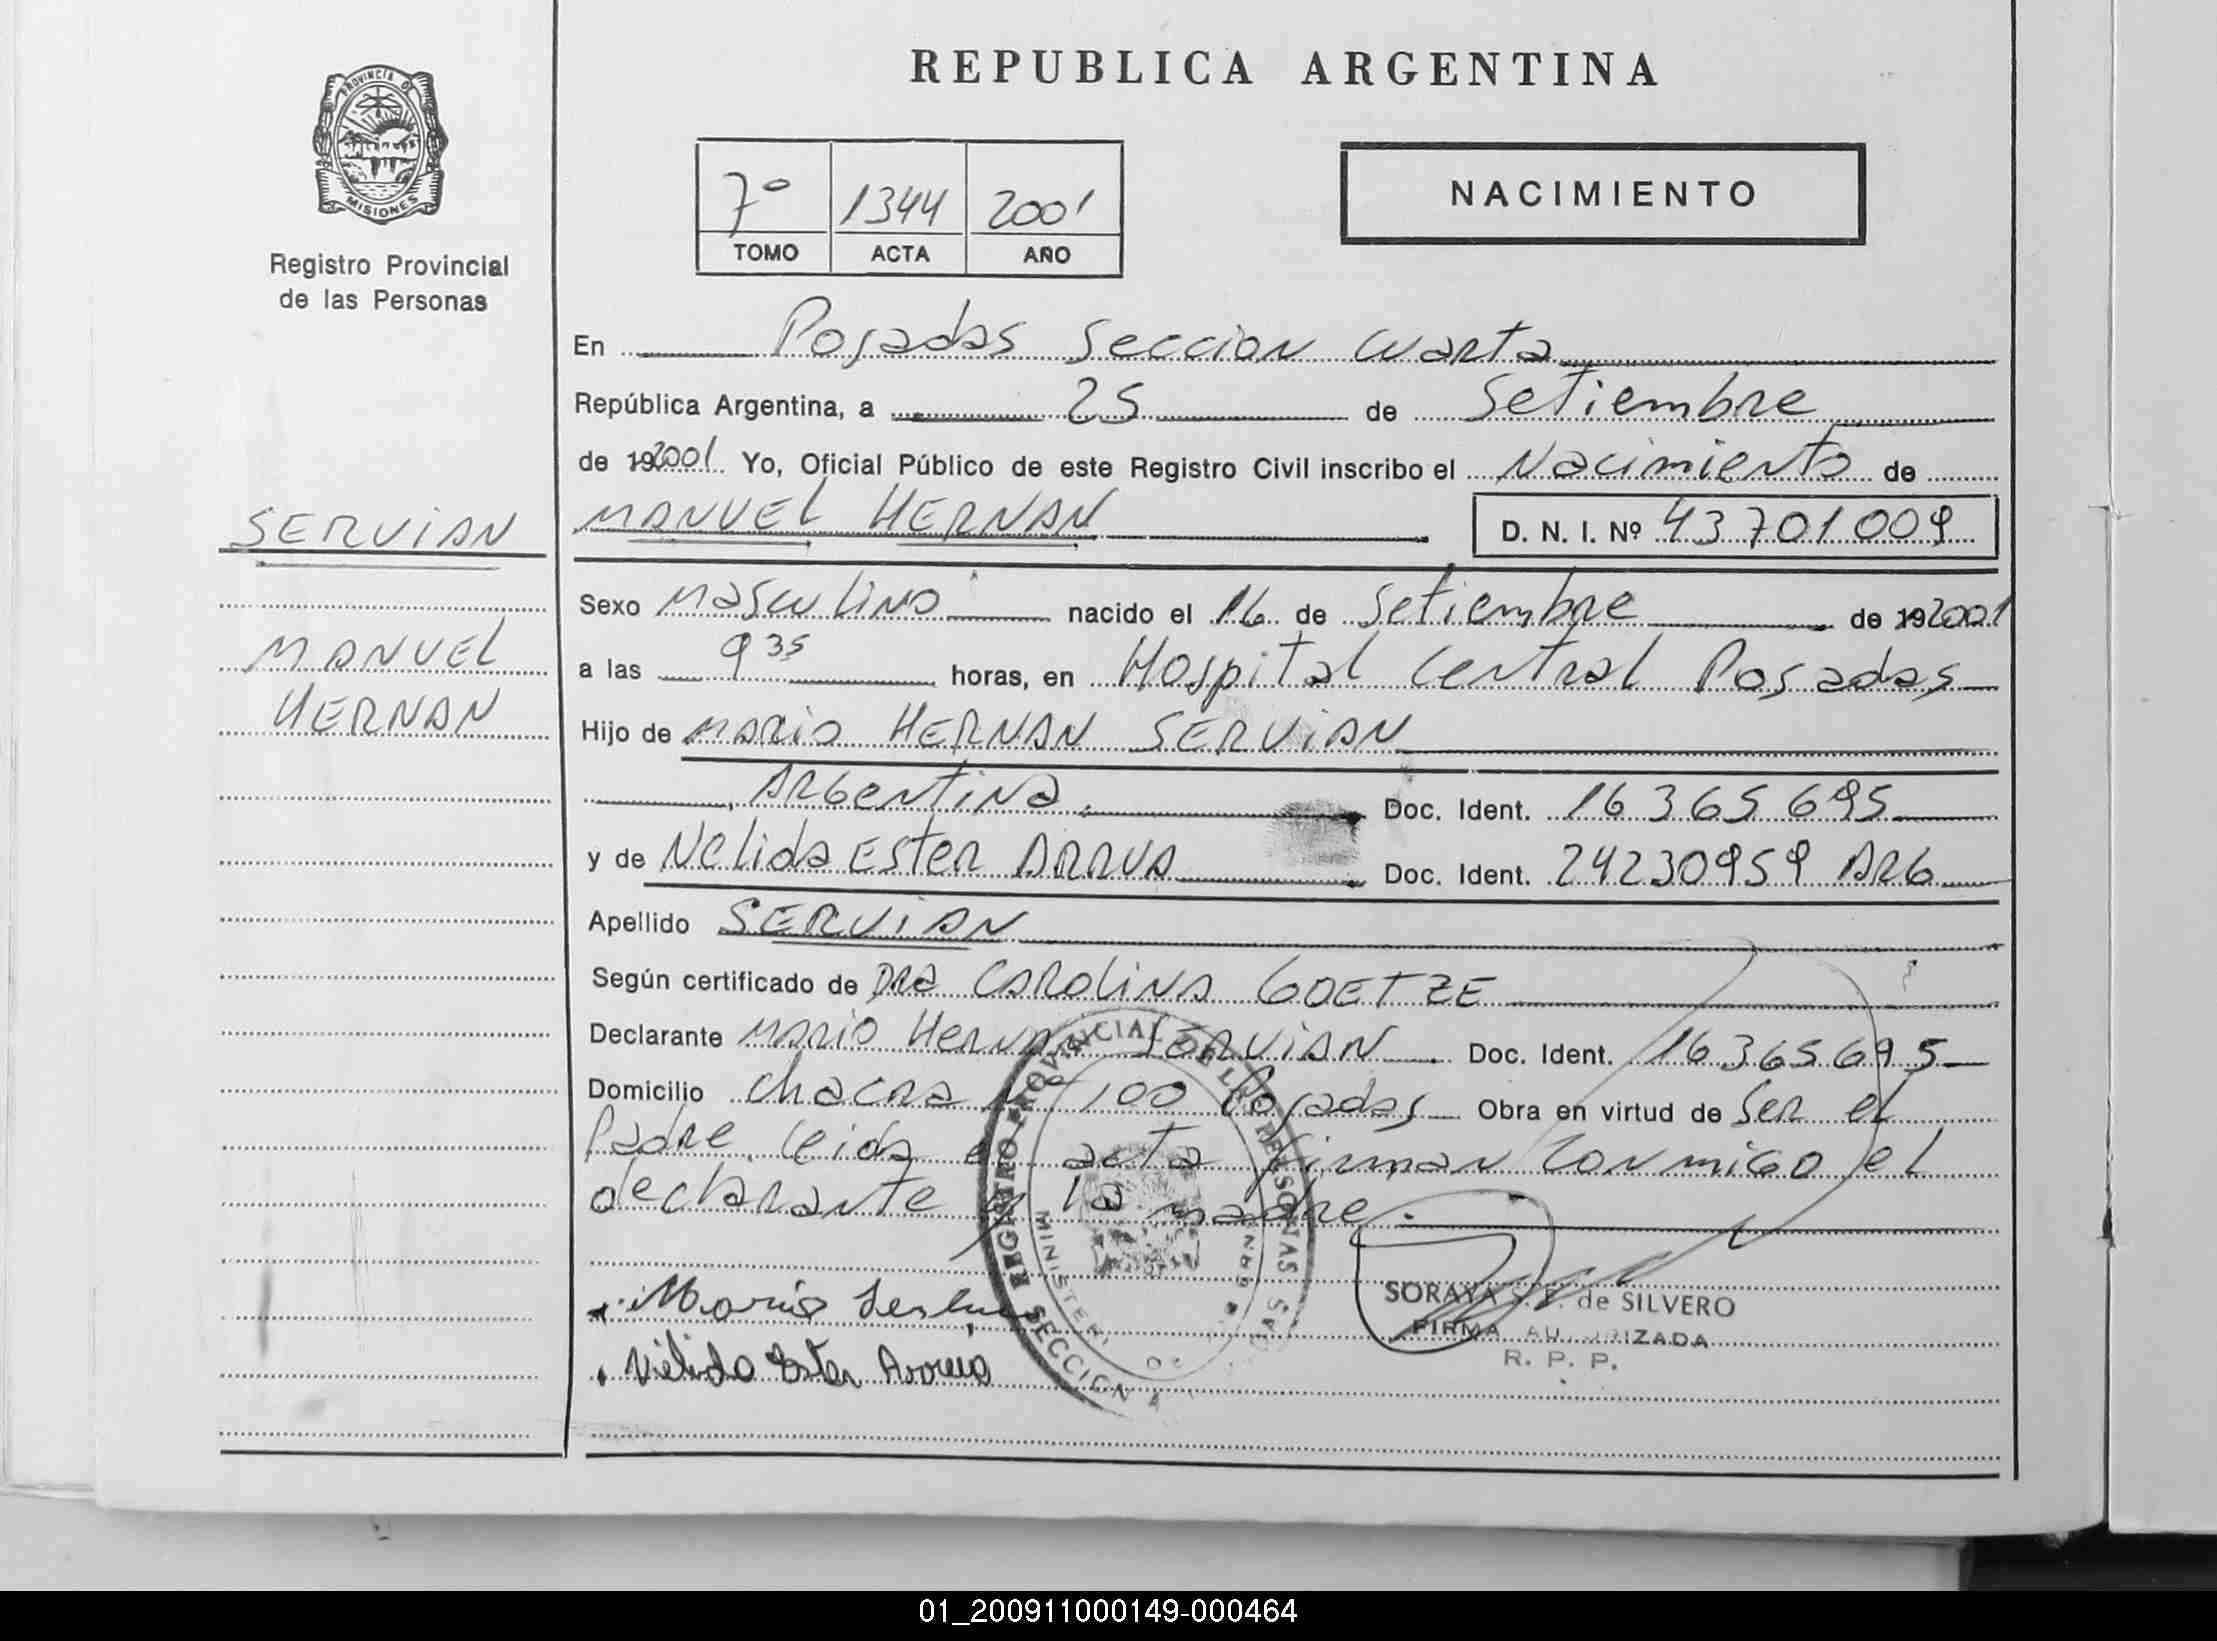 REPUBLICA ARGENTINA
PROVINCIA DE
MISIONES
Registro Provincial
de las Personas
7º 1344 2001
TOMO ACTA AÑO
NACIMIENTO
En Posadas Seccion Cuarta
República Argentina, a 25 de Setiembre
de 192001 Yo, Oficial Público de este Registro Civil inscribo el Nacimiento de
SERVIAN
MANUEL HERNAN D. N. I. Nº 43701009
MANUEL
HERNAN
Sexo Masculino nacido el 16 de Setiembre de 192001
a las 9 35 horas, en Hospital Central Posadas
Hijo de MARIO HERNAN SERVIAN
Argentina Doc. Ident. 16365695
y de Nelida Ester ARRUA Doc. Ident. 24230959 ARG
Apellido SERVIAN
Según certificado de DRA CAROLINA GOETZE
Declarante MARIO HERNAN SERVIAN Doc. Ident. 16365695
Domicilio Chacra Nº 100 Posadas Obra en virtud de Ser el
Padre. Leida el acta firman conmigo el
declarante y la madre.
REGISTRO PROVINCIAL DE LAS PERSONAS
SECCION
Mario Servian
Nélida Ester Arrua
SORAYA S. E. de SILVERO
FIRMA AUTORIZADA
R. P. P.
01_200911000149-000464